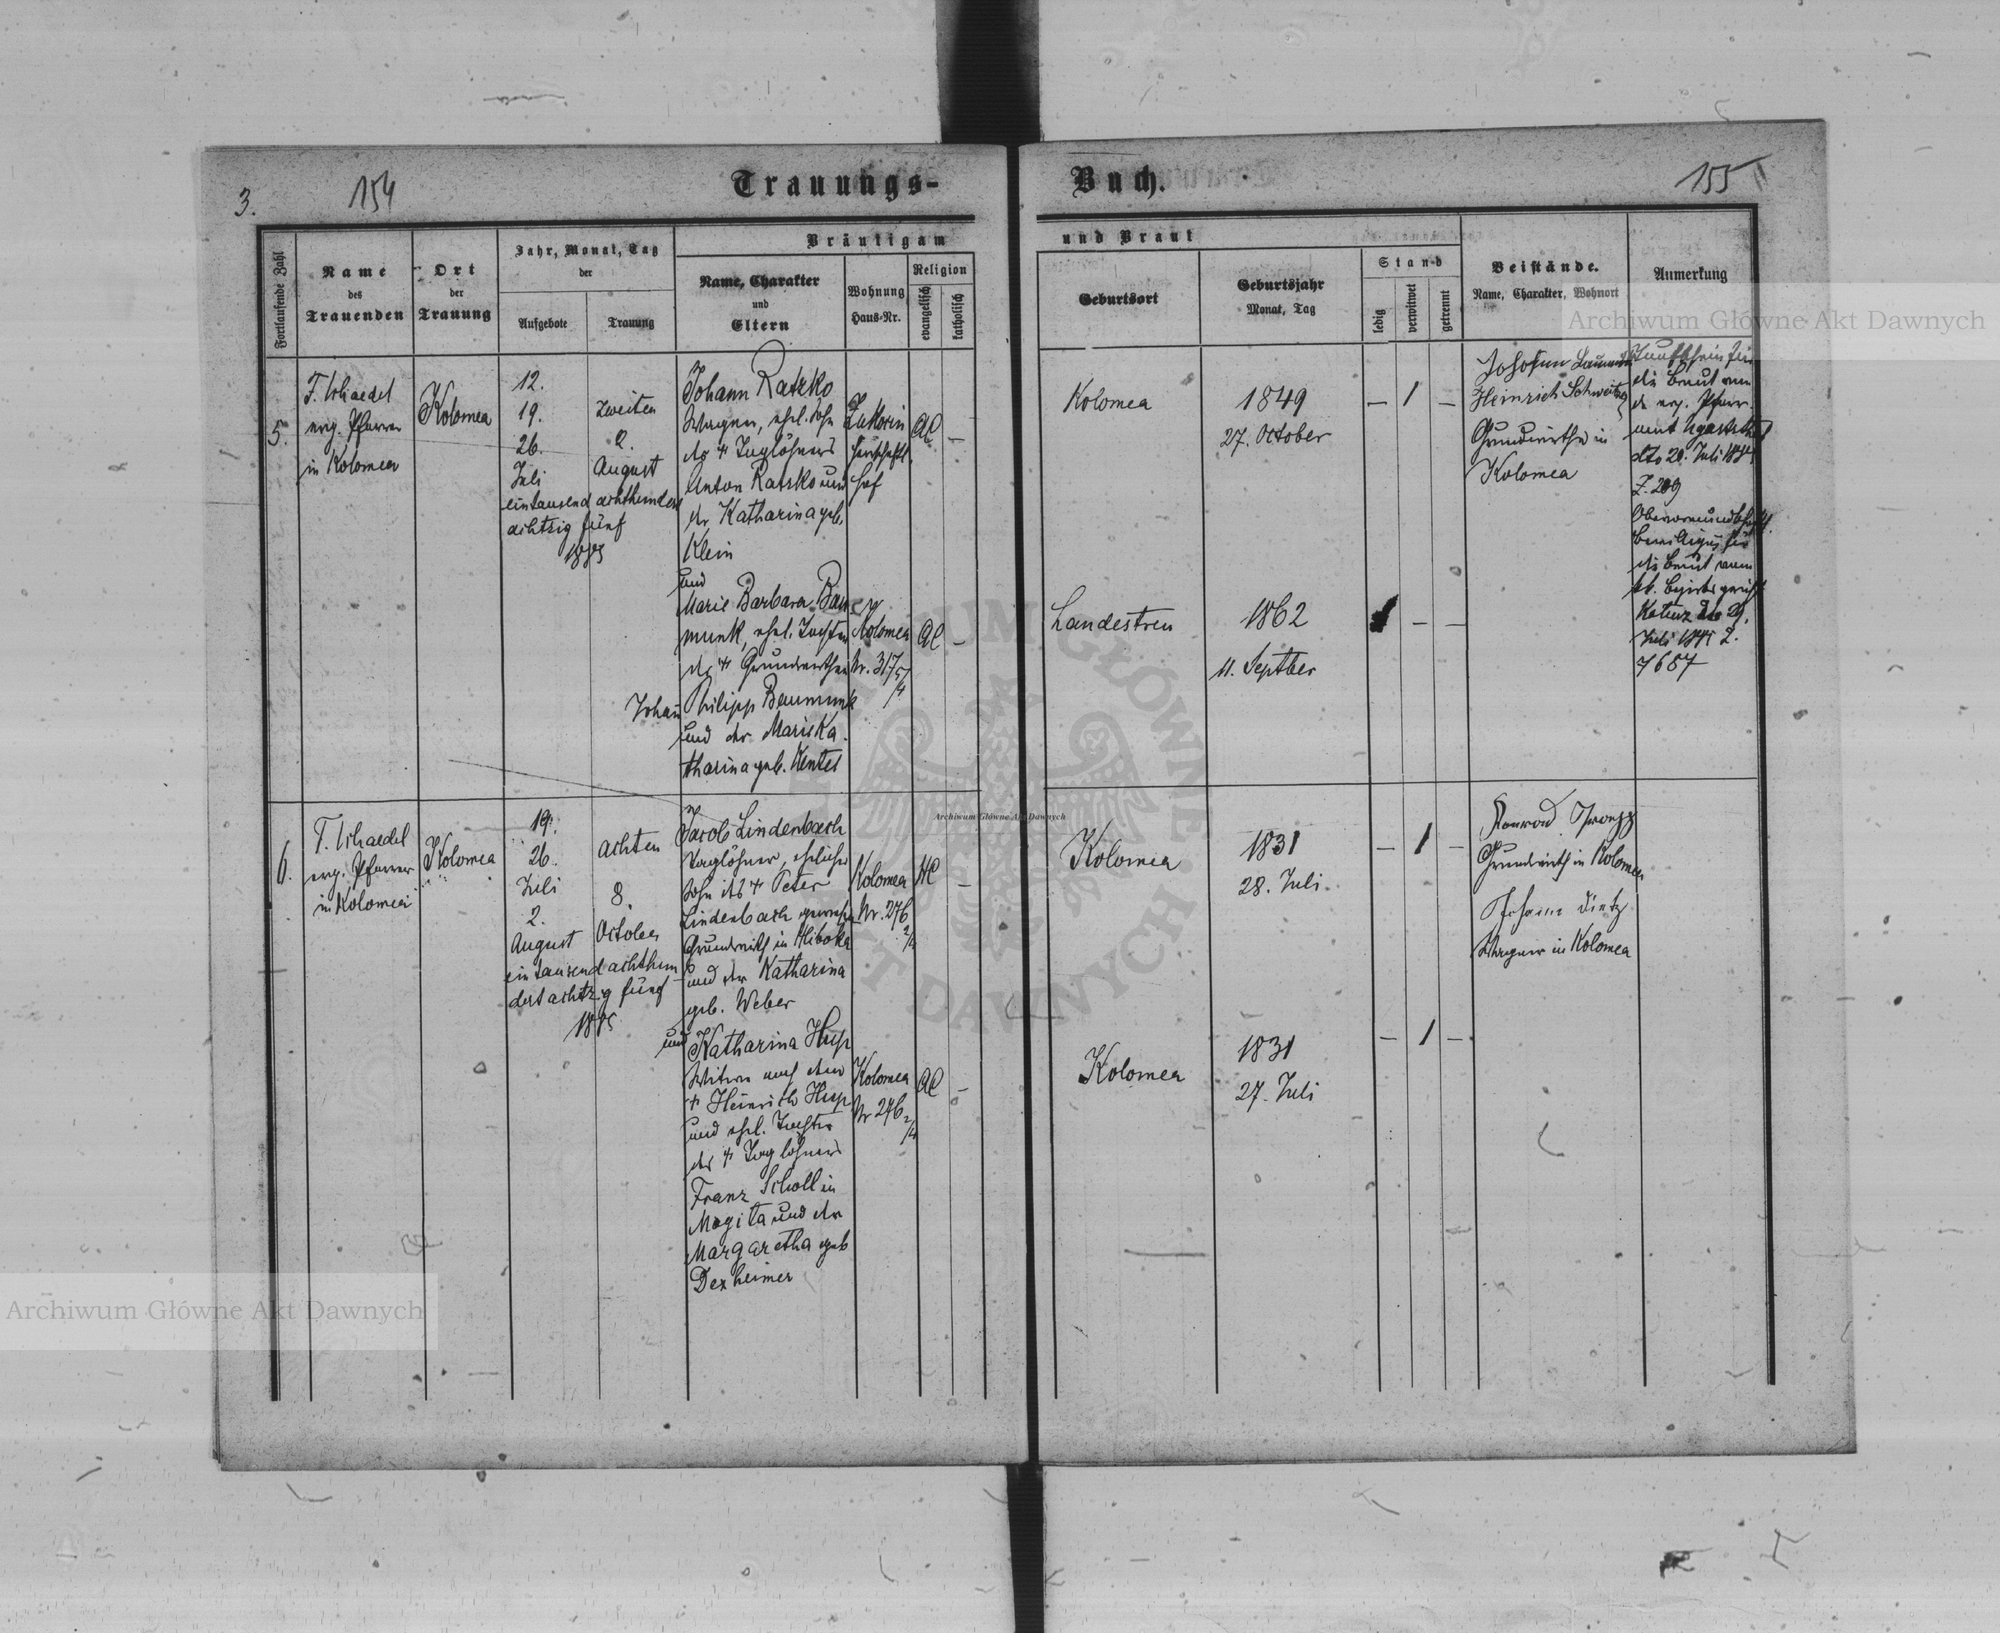 3.
154
Trauungs-
Buch.
155
Fortlaufende Zahl
Name
des
Trauenden
Ort
der
Trauung
Jahr, Monat, Tag
der
Aufgebote
Trauung
Bräutigam
Name, Charakter
und
Eltern
Wohnung
Haus-Nr.
Religion
evangelisch
katholisch
und Braut
Geburtsort
Geburtsjahr
Monat, Tag
Stand
ledig
verwitwet
getrennt
Beistände.
Name, Charakter, Wohnort
Anmerkung
Archiwum Główne Akt Dawnych
5.
evg. Pfarrer
in Kolomea
Kolomea
12.
19.
26.
Juli
zweiten
2.
August
eintausend achthundert
achtzig fünf
1885
Johann Ratzko
Wagner, ehel. Sohn
des + Taglöhners
Anton Ratzko und
der Katharina geb.
Klein
und
Marie Barbara Bau
munk, ehel. Tochter
des + Grundwirthen
Johan Philipp Baumunk
und der Marie Ka-
tharina geb. Kentel
herrschaftl.
Hof
Kolomea
Nr. 317
AC
–
AC
–
Kolomea
1849
27. October
– 1 –
Landestreu
1862
11. Septber
– –
Johann
Heinrich Schweitzer
Grundwirthe in
Kolomea
Taufschein für
die Braut vom
ev. Pfarr-
amt Ugartsthal
dto 20. Juli 1885
Z. 209
die Braut vom
kk. Bezirksgericht
Juli 1885 Z.
7687
6.
evg. Pfarrer
in Kolomea
Kolomea
19.
26.
Juli
2.
August
achten
8.
October
eintausend achthun-
dert achtzig fünf
1885
Jacob Lindenbach
Taglöhner, ehelicher
Sohn des + Peter
Lindenbach gewesen
Grundwirth in Hliboka
und der Katharina
geb. Weber
und
Katharina Hup
Witwe nach dem
+ Heinrich Hup
und ehel. Tochter
des + Taglöhners
Franz Scholl in
Mogita und der
Margaretha geb
Dexheimer
Kolomea
Nr. 276
2/4
HC
–
Kolomea
Nr 276
2/4
AC
–
Kolomea
1831
28. Juli
– 1 –
Kolomea
1831
27. Juli
– 1 –
Konrad
Grundwirth in Kolomea
Johann Dietz
Wagner in Kolomea
Archiwum Główne Akt Dawnych
Archiwum Główne Akt Dawnych